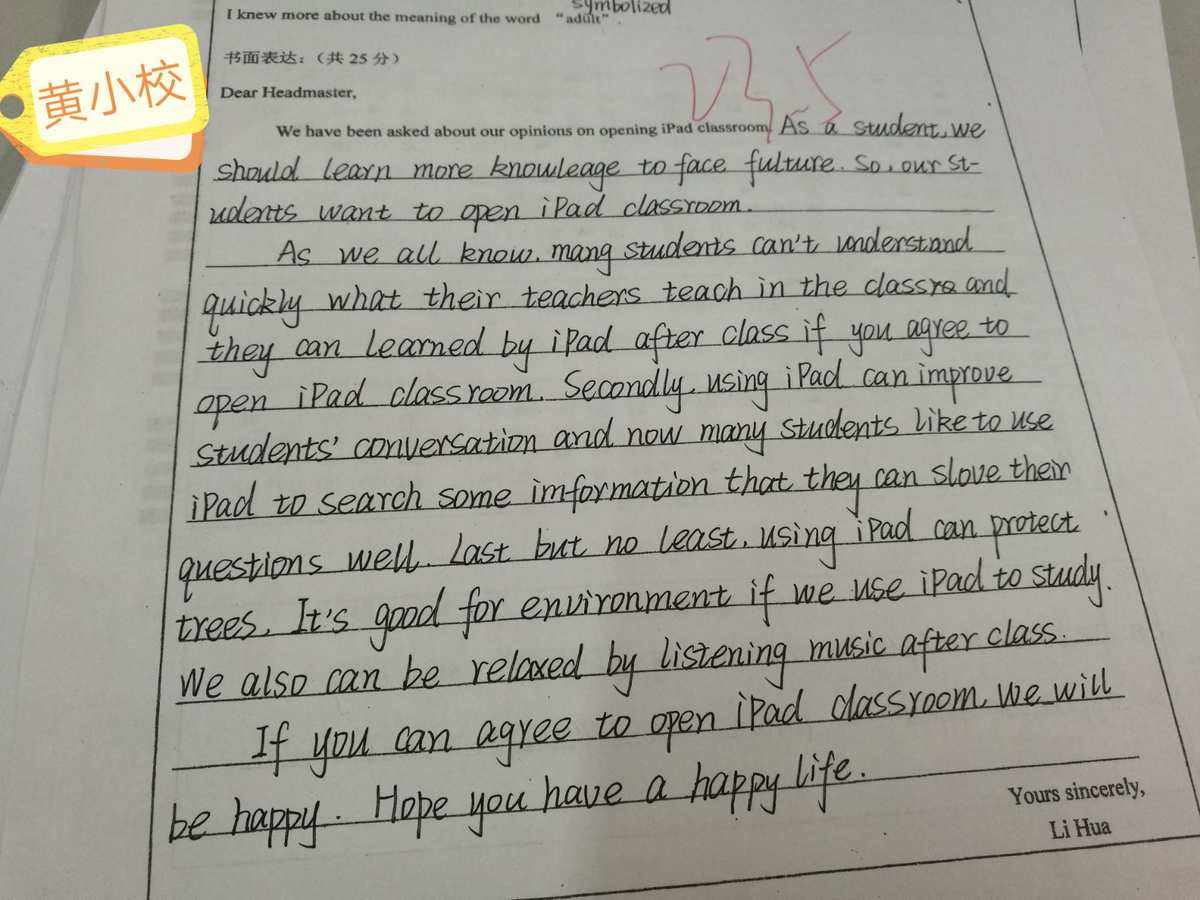 symbolized
I knew more about the meaning of the word “adult”.
书面表达：（共 25 分）
黄小校
23.5
Dear Headmaster,
We have been asked about our opinions on opening iPad classroom. As a student, we
should learn more knowleage to face fulture. So, our st-
udents want to open iPad classroom.
As we all know, mang students can't understand
quickly what their teachers teach in the classro and
they can learned by iPad after class if you agree to
open iPad classroom. Secondly, using iPad can improve
students' conversation and now many students like to use
iPad to search some imformation that they can slove their
questions well. Last but no least, using iPad can protect
trees. It's good for environment if we use iPad to study.
We also can be relaxed by listening music after class.
If you can agree to open iPad classroom, we will
be happy. Hope you have a happy life.
Yours sincerely,
Li Hua